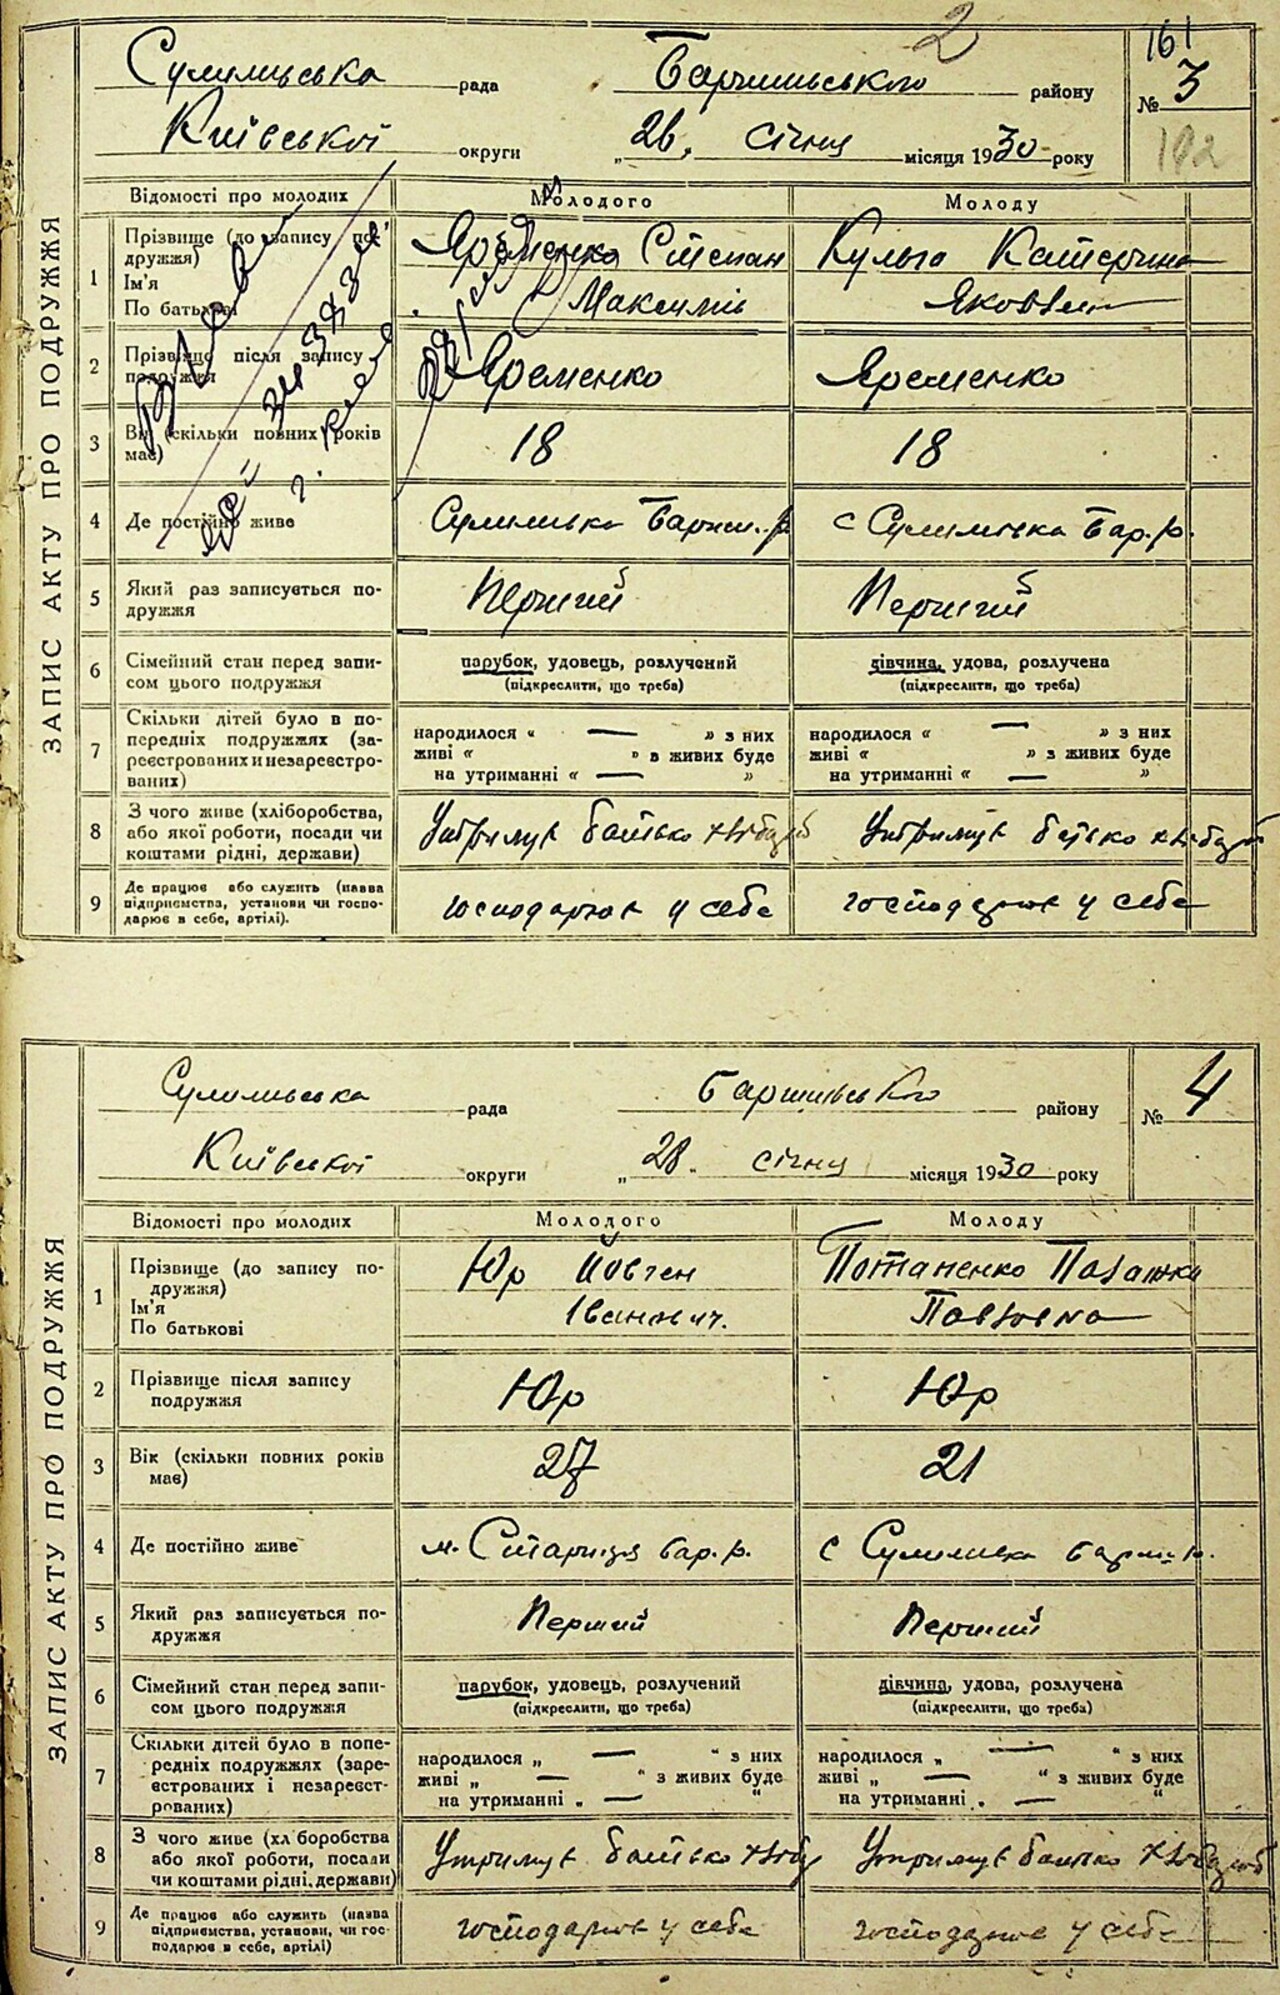 2
161
Сулимська рада Баришського району № 3
192
Київської округи „26. січня місяця 1930 року
ЗАПИС АКТУ ПРО ПОДРУЖЖЯ
Відомості про молодих Молодого Молоду
1 Прізвище (до запису подружжя) Яременко Степан Кульга Катерина
Ім'я
По батькові Максимів Яковівна
2 Прізвище після запису подружжя Яременко Яременко
3 Вік (скільки повних років має) 18 18
4 Де постійно живе Сулимівка Бариш. р. с Сулимівка Бар. р.
5 Який раз записується подружжя Перший Перший
6 Сімейний стан перед записом цього подружжя парубок, удовець, розлучений дівчина, удова, розлучена
(підкреслити, що треба) (підкреслити, що треба)
7 Скільки дітей було в попередніх подружжях (зареєстрованих и незареєстрованих)
народилося « — » з них народилося « — » з них
живі « » з живих буде живі « » з живих буде
на утриманні « — » на утриманні « — »
8 З чого живе (хліборобства, або якої роботи, посади чи коштами рідні, держави) Утримує батько Утримує батько
9 Де працює або служить (назва підприємства, установи чи господарює в себе, артілі). господарює у себе господарює у себе
Сулимська рада Баришського району № 4
Київської округи „28. січня місяця 1930 року
ЗАПИС АКТУ ПРО ПОДРУЖЖЯ
Відомості про молодих Молодого Молоду
1 Прізвище (до запису подружжя) Юр Йовген Потапенко Палажка
Ім'я
По батькові Іванович. Павловна
2 Прізвище після запису подружжя Юр Юр
3 Вік (скільки повних років має) 27 21
4 Де постійно живе м. Стариця Бар. р. с Сулимівка Бариш. р.
5 Який раз записується подружжя Перший Перший
6 Сімейний стан перед записом цього подружжя парубок, удовець, розлучений дівчина, удова, розлучена
(підкреслити, що треба) (підкреслити, що треба)
7 Скільки дітей було в попередніх подружжях (зареєстрованих і незареєстрованих)
народилося „ — “ з них народилося „ — “ з них
живі „ — “ з живих буде живі „ — “ з живих буде
на утриманні „ — “ на утриманні „ — “
8 З чого живе (хліборобства або якої роботи, посади чи коштами рідні, держави) Утримує батько Утримує батько
9 Де працює або служить (назва підприємства, установи, чи господарює в себе, артілі) господарює у себе господарює у себе